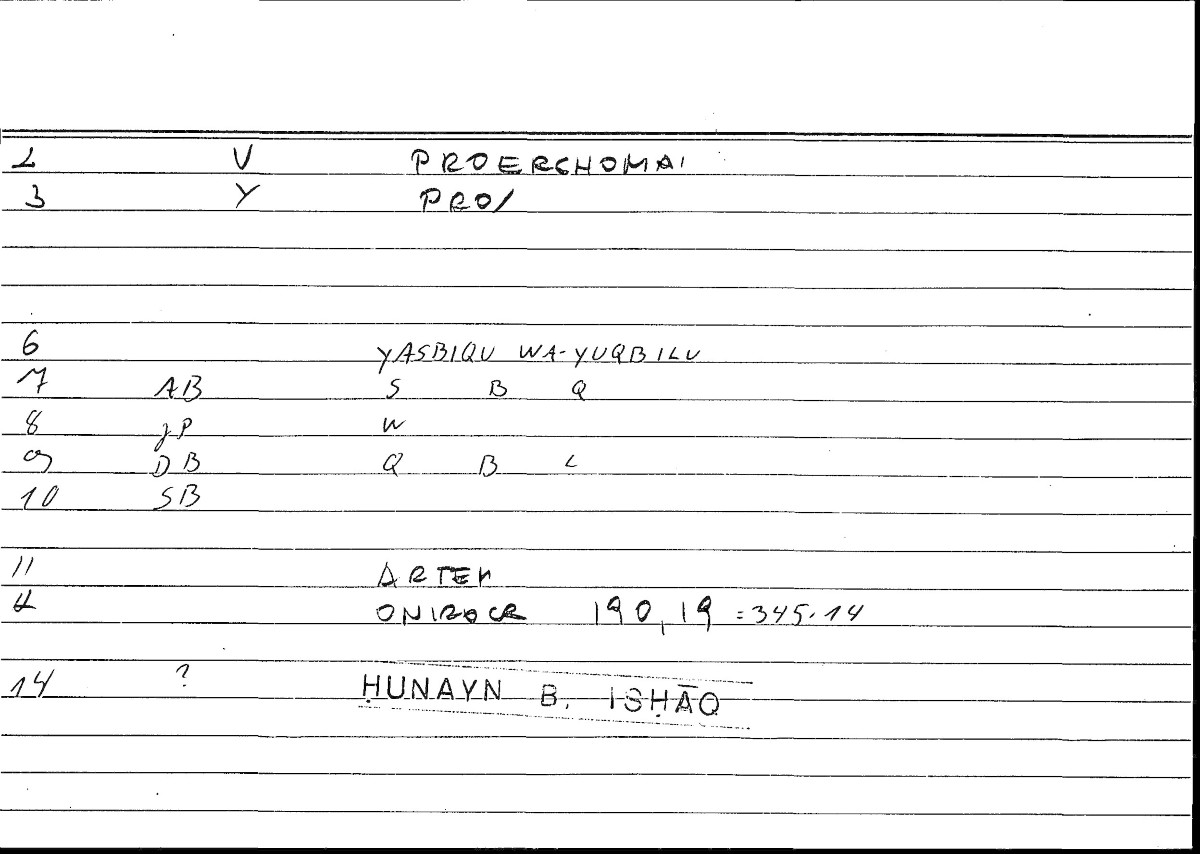 2 V PROERCHOMAI
3 Y PRO/
6 YASBIQU WA-YUQBILU
7 AB S B Q
8 JP W
9 DB Q B L
10 SB
11 ARTEM
ONIROCR 190,19 = 345.14
14 ? ḤUNAYN B. ISḤĀQ